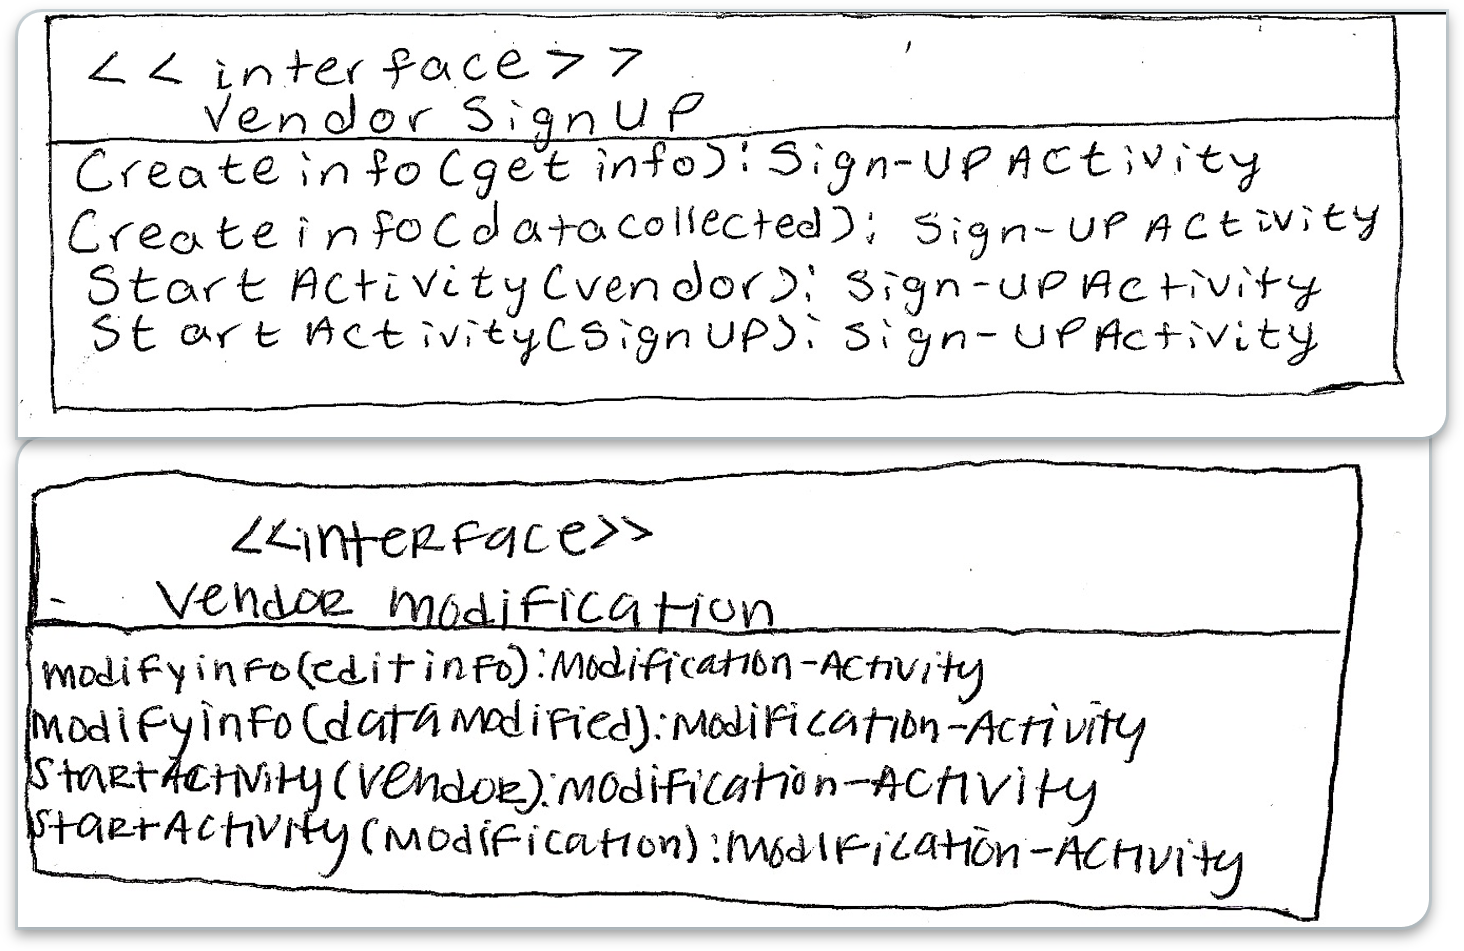 << interface >>
Vendor SignUP
Createinfo(get info): Sign-UPActivity
Createinfo(datacollected): Sign-UPActivity
Start Activity(vendor): Sign-UPActivity
Start Activity(SignUP): Sign-UPActivity
<<interface>>
Vendor modification
modifyinfo(editinfo):Modification-Activity
modifyinfo(datamodified):Modification-Activity
StartActivity(Vendor):modification-Activity
StartActivity(Modification):Modification-Activity